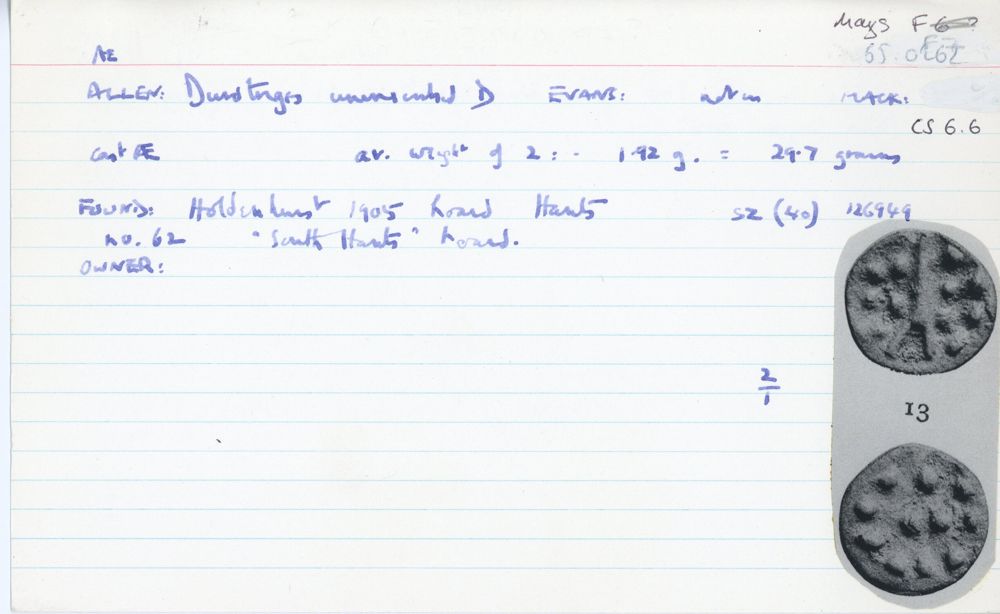 Mays F6
AE
65.0262
ALLEN: Durotriges uninscribed D EVANS: not in MACK:
CS 6.6
Cast AE av. weight of 2 : - 1.92 g. = 29.7 grains
FOUND: Holdenhurst 1905 hoard Hants SZ (40) 126949
no. 62 "South Hants" hoard.
OWNER:
2
1
13